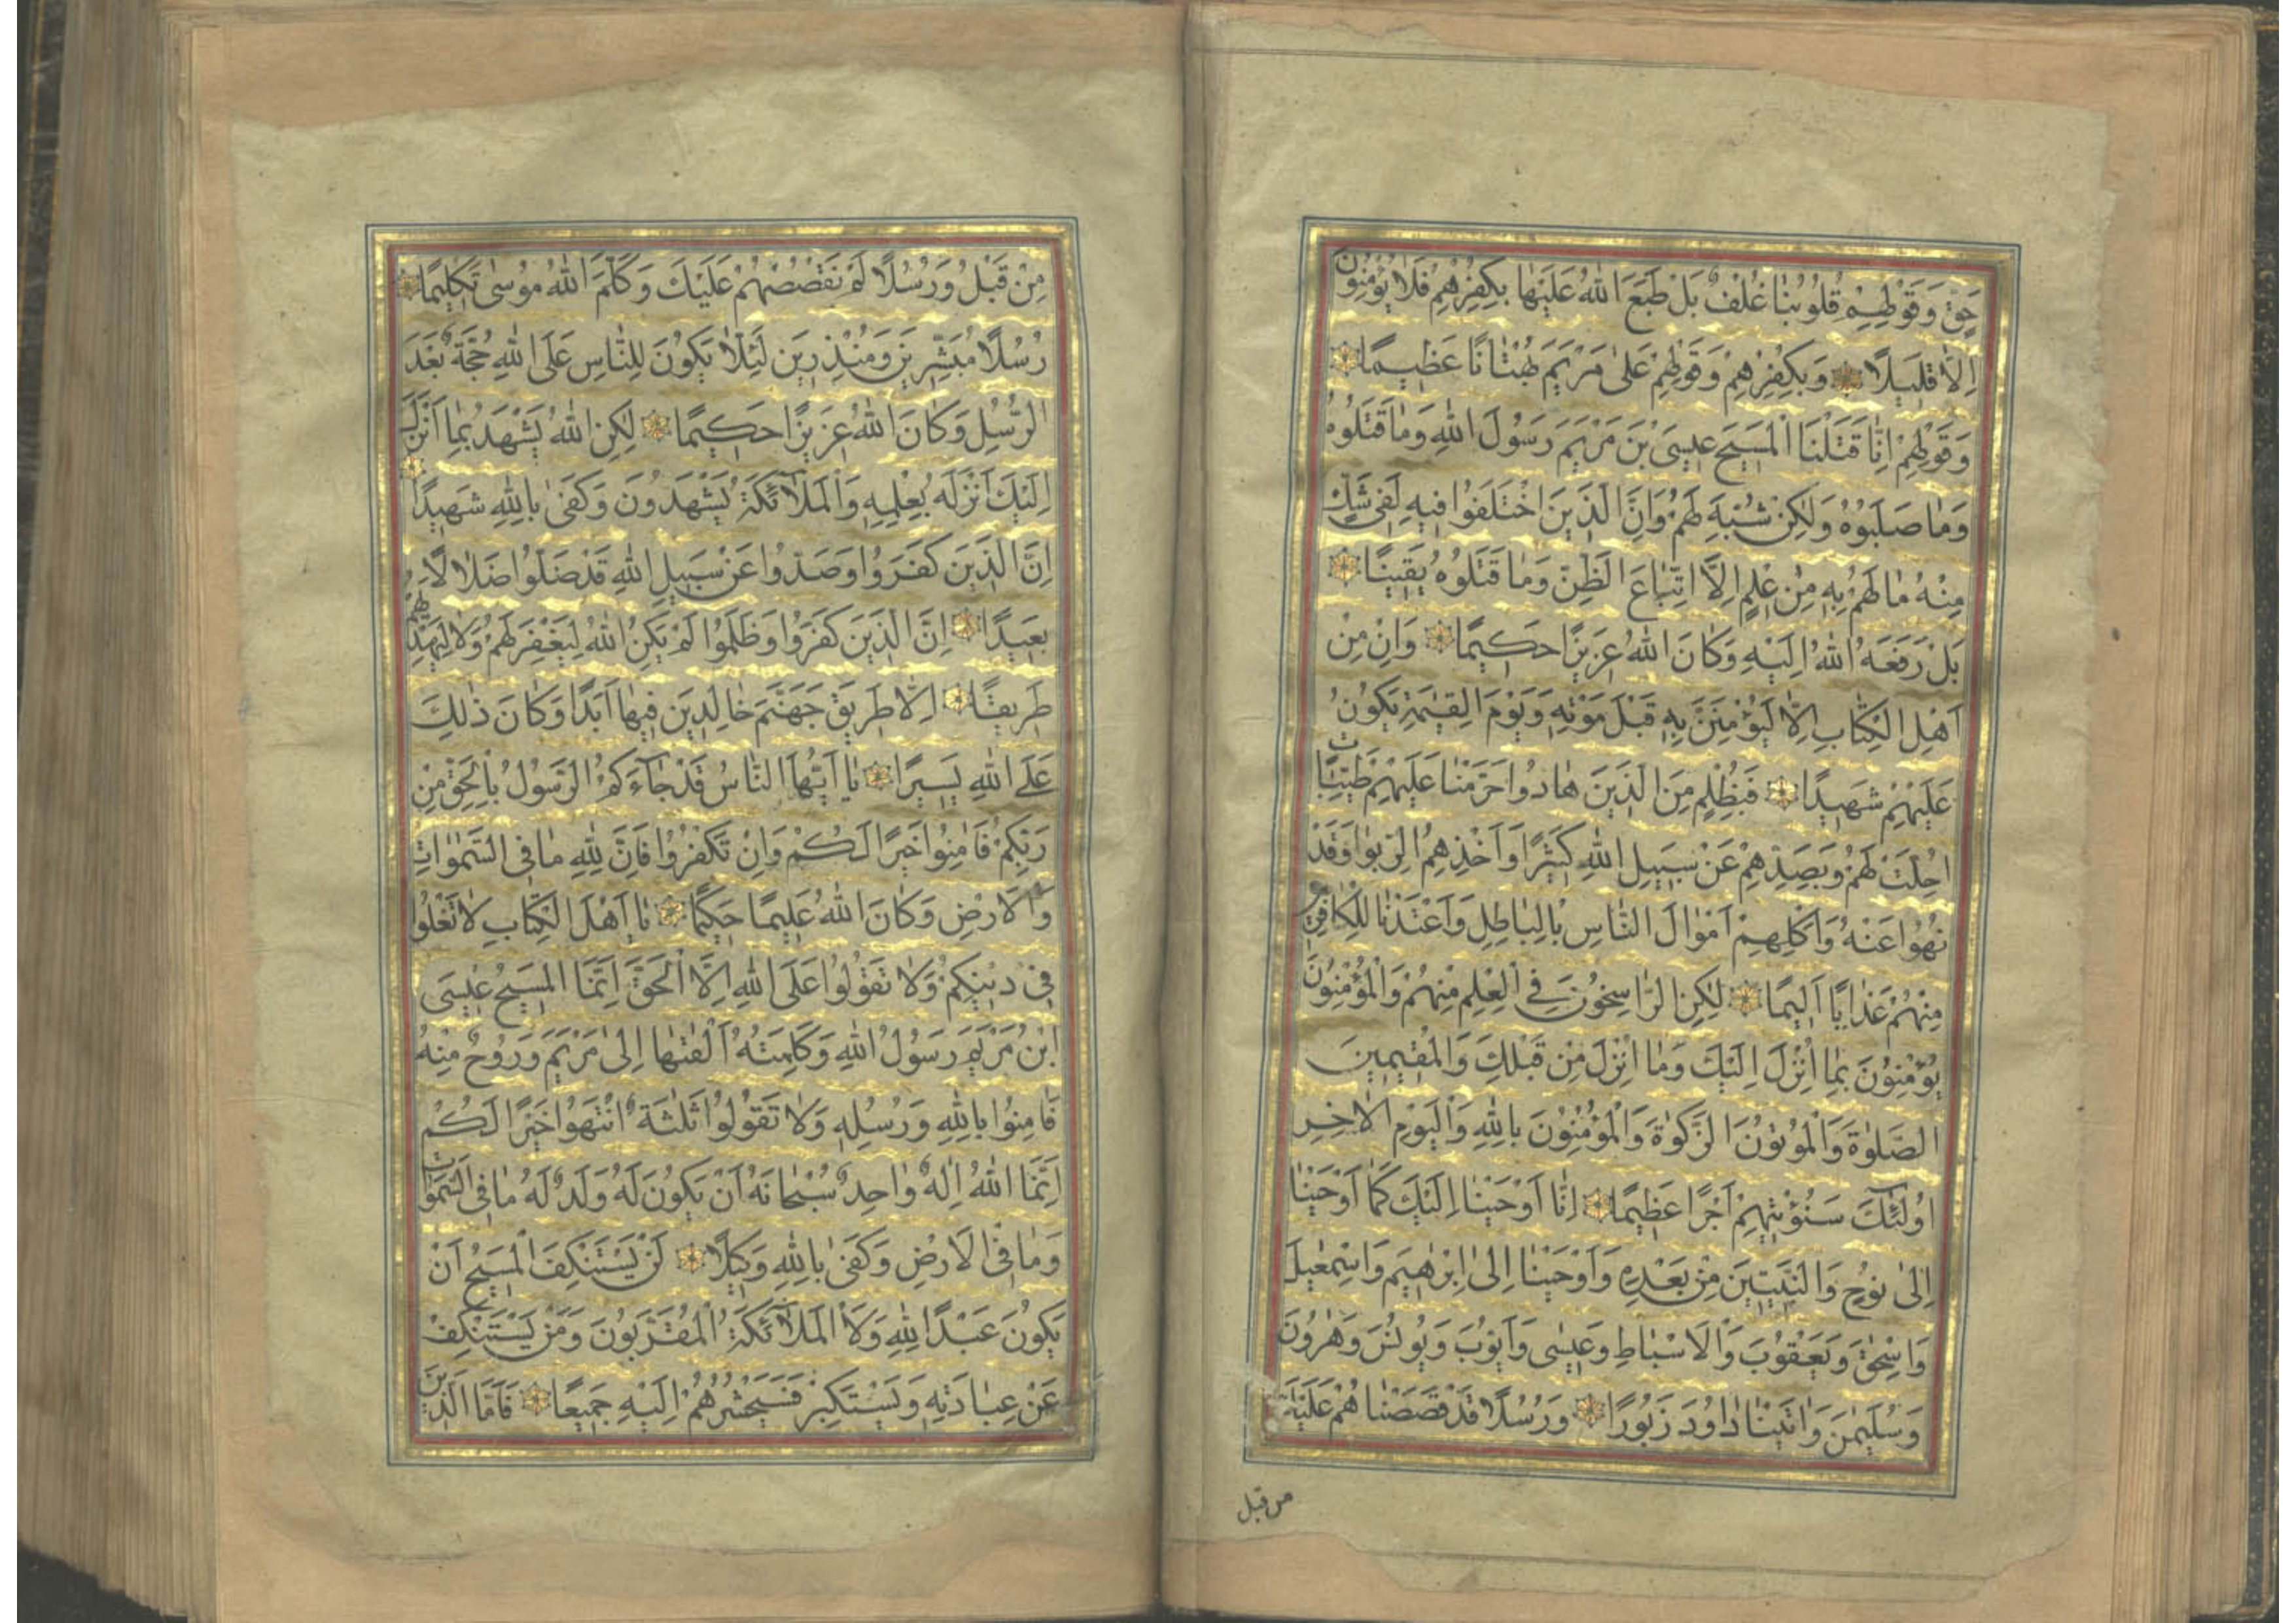 حَقٍّ وَقَوْلِهِمْ قُلُوبُنَا غُلْفٌ بَلْ طَبَعَ اللّٰهُ عَلَيْهَا بِكُفْرِهِمْ فَلَا يُؤْمِنُونَ
اِلَّا قَلِيلًا وَبِكُفْرِهِمْ وَقَوْلِهِمْ عَلٰى مَرْيَمَ بُهْتَانًا عَظِيمًا
وَقَوْلِهِمْ اِنَّا قَتَلْنَا الْمَسِيحَ عِيسَى بْنَ مَرْيَمَ رَسُولَ اللّٰهِ وَمَا قَتَلُوهُ
وَمَا صَلَبُوهُ وَلٰكِنْ شُبِّهَ لَهُمْ وَاِنَّ الَّذِينَ اخْتَلَفُوا فِيهِ لَفِى شَكٍّ
مِنْهُ مَا لَهُمْ بِهِ مِنْ عِلْمٍ اِلَّا اتِّبَاعَ الظَّنِّ وَمَا قَتَلُوهُ يَقِينًا
بَلْ رَفَعَهُ اللّٰهُ اِلَيْهِ وَكَانَ اللّٰهُ عَزِيزًا حَكِيمًا وَاِنْ مِنْ
اَهْلِ الْكِتَابِ اِلَّا لَيُؤْمِنَنَّ بِهِ قَبْلَ مَوْتِهِ وَيَوْمَ الْقِيٰمَةِ يَكُونُ
عَلَيْهِمْ شَهِيدًا فَبِظُلْمٍ مِنَ الَّذِينَ هَادُوا حَرَّمْنَا عَلَيْهِمْ طَيِّبَاتٍ
اُحِلَّتْ لَهُمْ وَبِصَدِّهِمْ عَنْ سَبِيلِ اللّٰهِ كَثِيرًا وَاَخْذِهِمُ الرِّبٰوا وَقَدْ
نُهُوا عَنْهُ وَاَكْلِهِمْ اَمْوَالَ النَّاسِ بِالْبَاطِلِ وَاَعْتَدْنَا لِلْكَافِرِينَ
مِنْهُمْ عَذَابًا اَلِيمًا لٰكِنِ الرَّاسِخُونَ فِى الْعِلْمِ مِنْهُمْ وَالْمُؤْمِنُونَ
يُؤْمِنُونَ بِمَا اُنْزِلَ اِلَيْكَ وَمَا اُنْزِلَ مِنْ قَبْلِكَ وَالْمُقِيمِينَ
الصَّلٰوةَ وَالْمُؤْتُونَ الزَّكٰوةَ وَالْمُؤْمِنُونَ بِاللّٰهِ وَالْيَوْمِ الْاٰخِرِ
اُولٰئِكَ سَنُؤْتِيهِمْ اَجْرًا عَظِيمًا اِنَّا اَوْحَيْنَا اِلَيْكَ كَمَا اَوْحَيْنَا
اِلٰى نُوحٍ وَالنَّبِيِّينَ مِنْ بَعْدِهِ وَاَوْحَيْنَا اِلٰى اِبْرٰهِيمَ وَاِسْمٰعِيلَ
وَاِسْحٰقَ وَيَعْقُوبَ وَالْاَسْبَاطِ وَعِيسٰى وَاَيُّوبَ وَيُونُسَ وَهٰرُونَ
وَسُلَيْمٰنَ وَاٰتَيْنَا دَاوُدَ زَبُورًا وَرُسُلًا قَدْ قَصَصْنَاهُمْ عَلَيْكَ
من قبل
مِنْ قَبْلُ وَرُسُلًا لَمْ نَقْصُصْهُمْ عَلَيْكَ وَكَلَّمَ اللّٰهُ مُوسٰى تَكْلِيمًا
رُسُلًا مُبَشِّرِينَ وَمُنْذِرِينَ لِئَلَّا يَكُونَ لِلنَّاسِ عَلَى اللّٰهِ حُجَّةٌ بَعْدَ
الرُّسُلِ وَكَانَ اللّٰهُ عَزِيزًا حَكِيمًا لٰكِنِ اللّٰهُ يَشْهَدُ بِمَا اَنْزَلَ
اِلَيْكَ اَنْزَلَهُ بِعِلْمِهِ وَالْمَلَائِكَةُ يَشْهَدُونَ وَكَفٰى بِاللّٰهِ شَهِيدًا
اِنَّ الَّذِينَ كَفَرُوا وَصَدُّوا عَنْ سَبِيلِ اللّٰهِ قَدْ ضَلُّوا ضَلَالًا
بَعِيدًا اِنَّ الَّذِينَ كَفَرُوا وَظَلَمُوا لَمْ يَكُنِ اللّٰهُ لِيَغْفِرَ لَهُمْ وَلَا لِيَهْدِيَهُمْ
طَرِيقًا اِلَّا طَرِيقَ جَهَنَّمَ خَالِدِينَ فِيهَا اَبَدًا وَكَانَ ذٰلِكَ
عَلَى اللّٰهِ يَسِيرًا يَا اَيُّهَا النَّاسُ قَدْ جَاءَكُمُ الرَّسُولُ بِالْحَقِّ مِنْ
رَبِّكُمْ فَاٰمِنُوا خَيْرًا لَكُمْ وَاِنْ تَكْفُرُوا فَاِنَّ لِلّٰهِ مَا فِى السَّمٰوَاتِ
وَالْاَرْضِ وَكَانَ اللّٰهُ عَلِيمًا حَكِيمًا يَا اَهْلَ الْكِتَابِ لَا تَغْلُوا
فِى دِينِكُمْ وَلَا تَقُولُوا عَلَى اللّٰهِ اِلَّا الْحَقَّ اِنَّمَا الْمَسِيحُ عِيسَى
ابْنُ مَرْيَمَ رَسُولُ اللّٰهِ وَكَلِمَتُهُ اَلْقٰيهَا اِلٰى مَرْيَمَ وَرُوحٌ مِنْهُ
فَاٰمِنُوا بِاللّٰهِ وَرُسُلِهِ وَلَا تَقُولُوا ثَلٰثَةٌ انْتَهُوا خَيْرًا لَكُمْ
اِنَّمَا اللّٰهُ اِلٰهٌ وَاحِدٌ سُبْحَانَهُ اَنْ يَكُونَ لَهُ وَلَدٌ لَهُ مَا فِى السَّمٰوَاتِ
وَمَا فِى الْاَرْضِ وَكَفٰى بِاللّٰهِ وَكِيلًا لَنْ يَسْتَنْكِفَ الْمَسِيحُ اَنْ
يَكُونَ عَبْدًا لِلّٰهِ وَلَا الْمَلَائِكَةُ الْمُقَرَّبُونَ وَمَنْ يَسْتَنْكِفْ
عَنْ عِبَادَتِهِ وَيَسْتَكْبِرْ فَسَيَحْشُرُهُمْ اِلَيْهِ جَمِيعًا فَاَمَّا الَّذِينَ